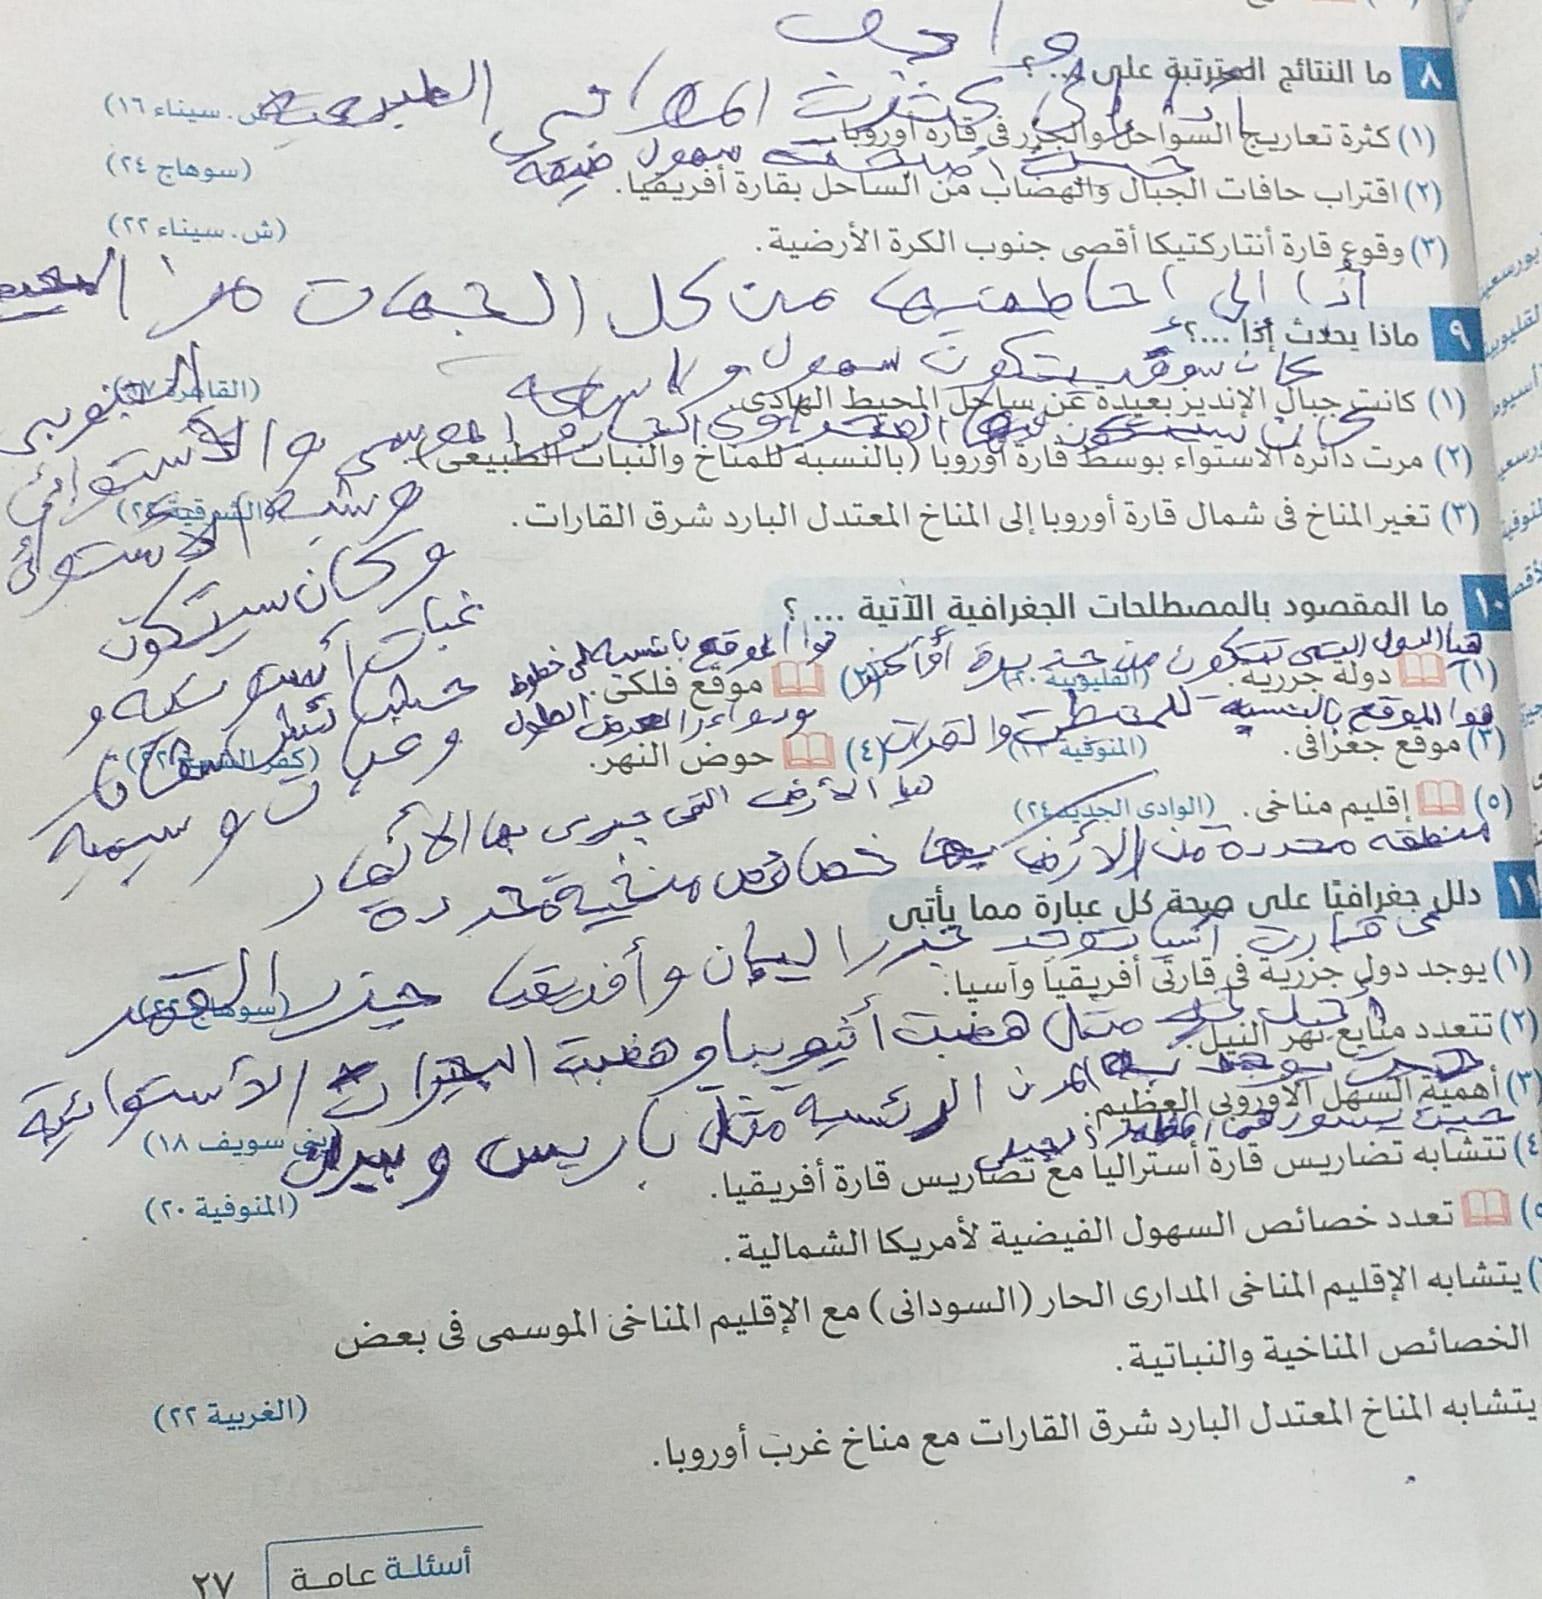 واجب
٨ ما النتائج المترتبة على ... ؟
أدا إلى كثرت الموانى الطبيعية
(١) كثرة تعاريج السواحل والجزر فى قارة أوروبا. (ش. سيناء ١٦)
حيث أصبحت سهول ضيقة
(٢) اقتراب حافات الجبال والهضاب من الساحل بقارة أفريقيا. (سوهاج ٢٤)
(٣) وقوع قارة أنتاركتيكا أقصى جنوب الكرة الأرضية. (ش. سيناء ٢٢)
أدا إلى أحاطتيها من كل الجهات
الجنوبى
٩ ماذا يحدث إذا ...؟
كان سوف يتكون سهول واسعه
(١) كانت جبال الإنديز بعيدة عن ساحل المحيط الهادى. (القاهرة
(٢) مرت دائرة الاستواء بوسط قارة أوروبا (بالنسبة للمناخ والنبات الطبيعى).
الموسمى والأستوائى
وشبه الأستوائى
(٣) تغير المناخ فى شمال قارة أوروبا إلى المناخ المعتدل البارد شرق القارات. (الشرقية
وكان سيتكون
غبات أستوائيه و
١٠ ما المقصود بالمصطلحات الجغرافية الآتية ... ؟
هيا الدول التى تتكون من جزيرة أو أكثر
هوا الموقع بانسبه لى خطوط
(١) دولة جزرية. (القليوبية ٢٠) (٢) موقع فلكى.
هوا الموقع بالنسبه للمحيطت والقرات
ودوائر العرض الطول
(٣) موقع جغرافى. (المنوفية (٤) حوض النهر. (كفر الشيخ
وغبات موسميه
هيا الأرض التى يجرى بها الأنهار
(٥) إقليم مناخى. (الوادى الجديد ٢٤)
منطقه محددة من الأرض بها خصائص منخية محددة
١١ دلل جغرافيًا على صحة كل عبارة مما يأتى
فى قارت أسيا توجد جزر اليابان وأفريقيا جزر القمر
(١) يوجد دول جزرية فى قارتى أفريقيا وآسيا. (سوهاج
مثل هضبت أثيوبيا وهضبت البحيرات الأستوائية
(٢) تتعدد منابع نهر النيل.
حيث يوجد به المدن الرئسية مثل باريس وبرلين
(٣) أهمية السهل الأوروبى العظيم. (بنى سويف ١٨)
(٤) تتشابه تضاريس قارة أستراليا مع تضاريس قارة أفريقيا. (المنوفية ٢٠)
تعدد خصائص السهول الفيضية لأمريكا الشمالية.
يتشابه الإقليم المناخى المدارى الحار (السودانى) مع الإقليم المناخى الموسمى فى بعض
الخصائص المناخية والنباتية.
(الغربية ٢٢)
يتشابه المناخ المعتدل البارد شرق القارات مع مناخ غرب أوروبا.
أسئلة عامة ٢٧